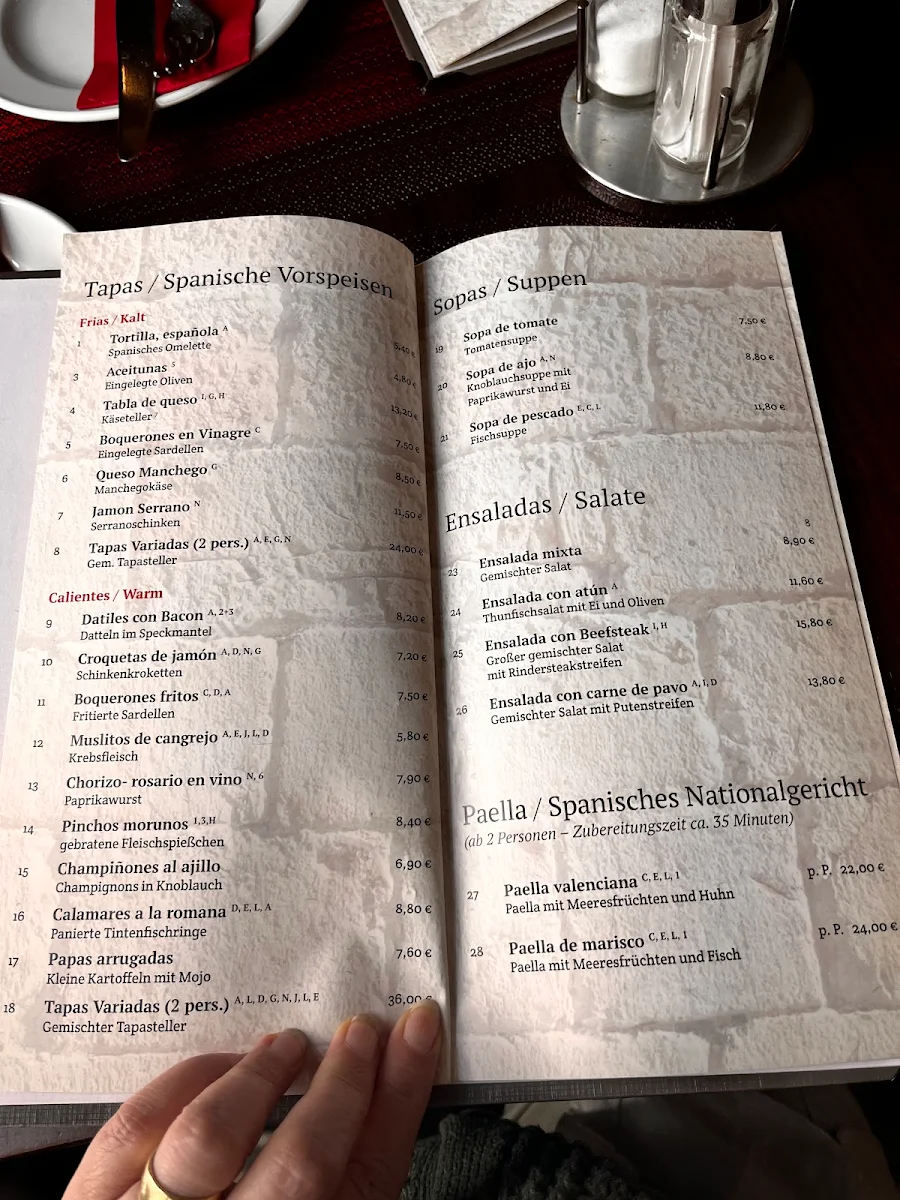 Tapas / Spanische Vorspeisen
Frias / Kalt
1 Tortilla, española A 5,40 €
Spanisches Omelette
3 Aceitunas 5 4,80 €
Eingelegte Oliven
4 Tabla de queso I, G, H 13,20 €
Käseteller 7
5 Boquerones en Vinagre C 7,50 €
Eingelegte Sardellen
6 Queso Manchego G 8,50 €
Manchegokäse
7 Jamon Serrano N 11,50 €
Serranoschinken
8 Tapas Variadas (2 pers.) A, E, G, N 24,00 €
Gem. Tapasteller
Calientes / Warm
9 Datiles con Bacon A, 2+3 8,20 €
Datteln im Speckmantel
10 Croquetas de jamón A, D, N, G 7,20 €
Schinkenkroketten
11 Boquerones fritos C, D, A 7,50 €
Fritierte Sardellen
12 Muslitos de cangrejo A, E, J, L, D 5,80 €
Krebsfleisch
13 Chorizo- rosario en vino N, 6 7,90 €
Paprikawurst
14 Pinchos morunos 1,3,H 8,40 €
gebratene Fleischspießchen
15 Champiñones al ajillo 6,90 €
Champignons in Knoblauch
16 Calamares a la romana D, E, L, A 8,80 €
Panierte Tintenfischringe
17 Papas arrugadas 7,60 €
Kleine Kartoffeln mit Mojo
18 Tapas Variadas (2 pers.) A, L, D, G, N, J, L, E 36,00 €
Gemischter Tapasteller
Sopas / Suppen
19 Sopa de tomate 7,50 €
Tomatensuppe
20 Sopa de ajo A, N 8,80 €
Knoblauchsuppe mit
Paprikawurst und Ei
21 Sopa de pescado E, C, L 11,80 €
Fischsuppe
Ensaladas / Salate
8
23 Ensalada mixta 8,90 €
Gemischter Salat
24 Ensalada con atún A 11,60 €
Thunfischsalat mit Ei und Oliven
25 Ensalada con Beefsteak I, H 15,80 €
Großer gemischter Salat
mit Rindersteakstreifen
26 Ensalada con carne de pavo A, I, D 13,80 €
Gemischter Salat mit Putenstreifen
Paella / Spanisches Nationalgericht
(ab 2 Personen – Zubereitungszeit ca. 35 Minuten)
27 Paella valenciana C, E, L, 1 p. P. 22,00 €
Paella mit Meeresfrüchten und Huhn
28 Paella de marisco C, E, L, 1 p. P. 24,00 €
Paella mit Meeresfrüchten und Fisch